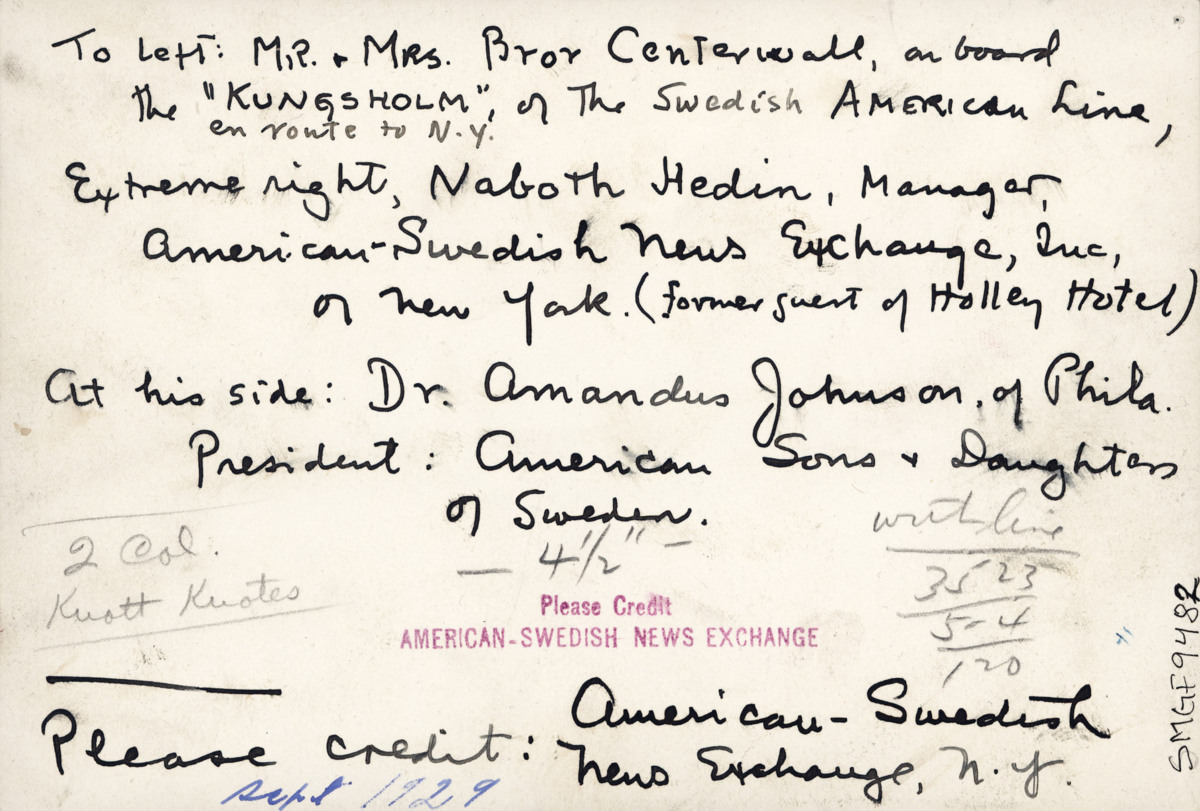 To left: MR. + MRS. Bror Centerwall, on board
the "KUNGSHOLM", of The Swedish AMERICAN Line,
en route to N.Y.
Extreme right, Naboth Hedin, Manager,
American-Swedish News Exchange, Inc,
of New York. (former guest of Holley Hotel)
At his side: Dr. Amandus Johnson, of Phila.
President: American Sons + Daughters
of Sweden.
— 4 1/2" —
2 Col.
Knott Knotes
with line
35 23
5-4
120
Please Credit
AMERICAN-SWEDISH NEWS EXCHANGE
Please credit: American-Swedish
News Exchange, N.Y.
Sept 1929
SMGF9482